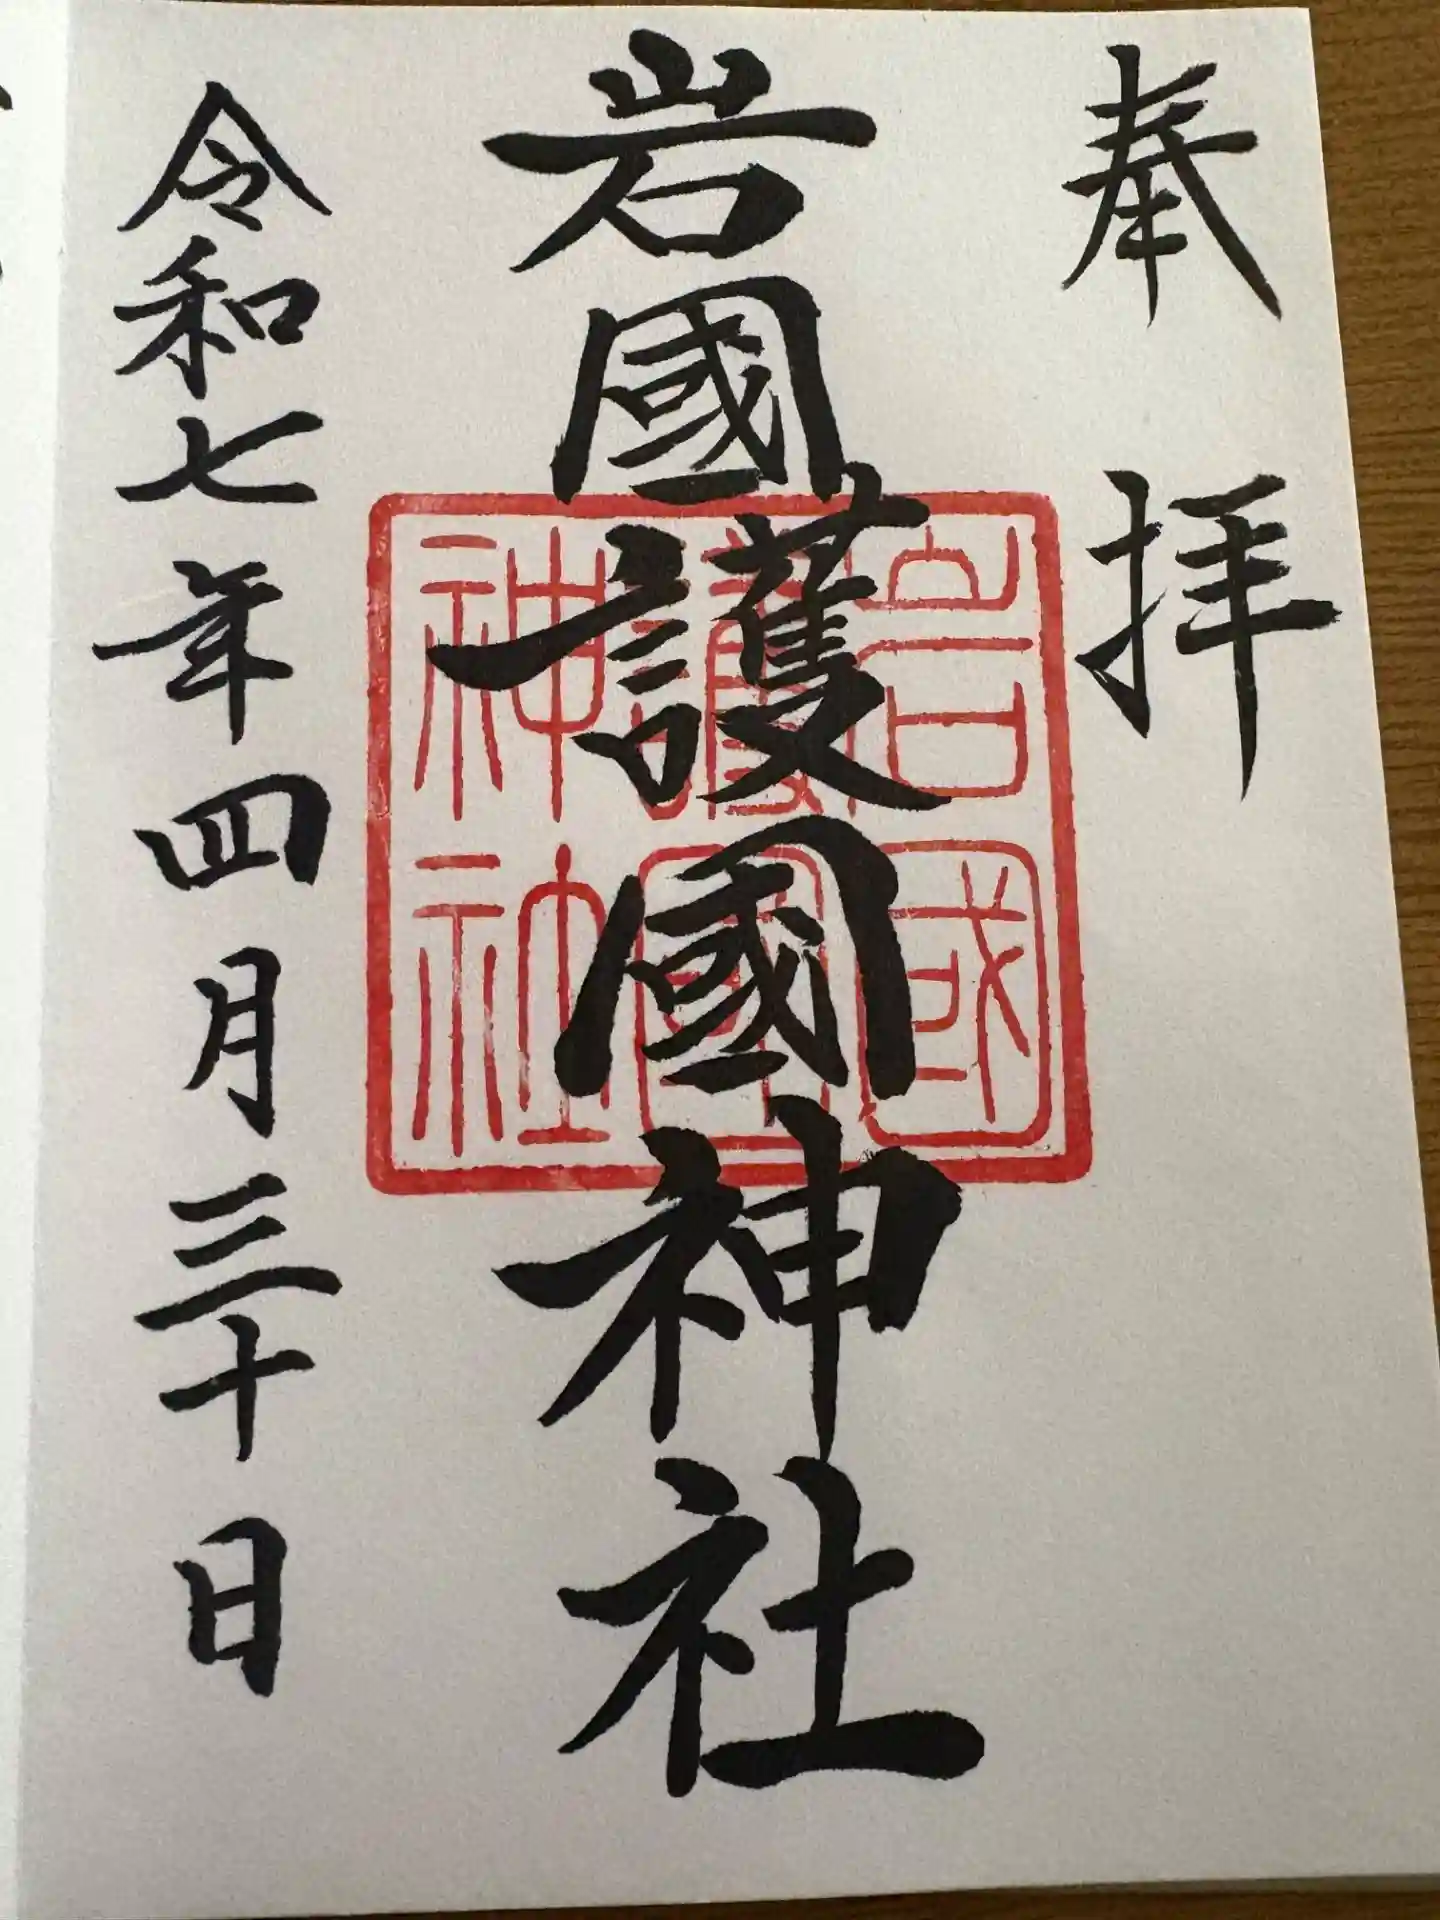 奉拝
岩國護國神社
岩國
護國
神社
令和七年四月三十日